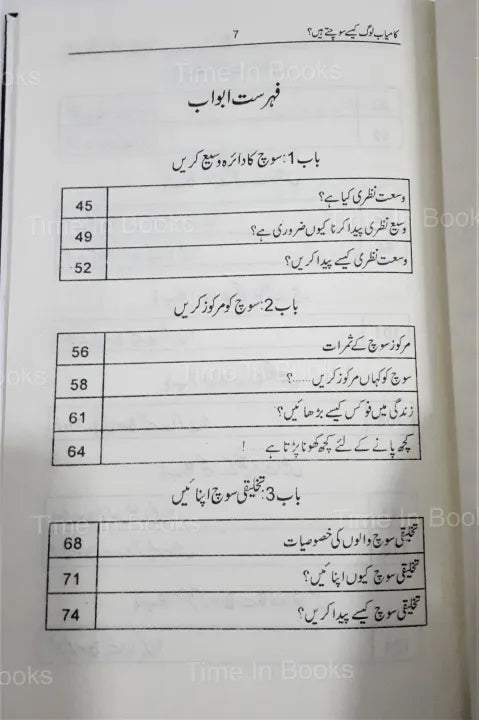 کامیاب لوگ کیسے سوچتے ہیں؟ 7
فہرست ابواب
باب 1: سوچ کا دائرہ وسیع کریں
وسعت نظری کیا ہے؟ 45
وسیع نظری پیدا کرنا کیوں ضروری ہے؟ 49
وسعت نظری کیسے پیدا کریں؟ 52
باب 2: سوچ کو مرکوز کریں
مرکوز سوچ کے ثمرات 56
سوچ کو کہاں مرکوز کریں......؟ 58
زندگی میں فوکس کیسے بڑھائیں؟ 61
کچھ پانے کے لئے کچھ کھونا پڑتا ہے....! 64
باب 3: تخلیقی سوچ اپنائیں
تخلیقی سوچ والوں کی خصوصیات 68
تخلیقی سوچ کیوں اپنائیں؟ 71
تخلیقی سوچ کیسے پیدا کریں؟ 74
Time In Books
Time In Books
Time In Books
ooks
Time In Books
ooks
Time In Books
Time In Books
Time In Books
ooks
Time In Books